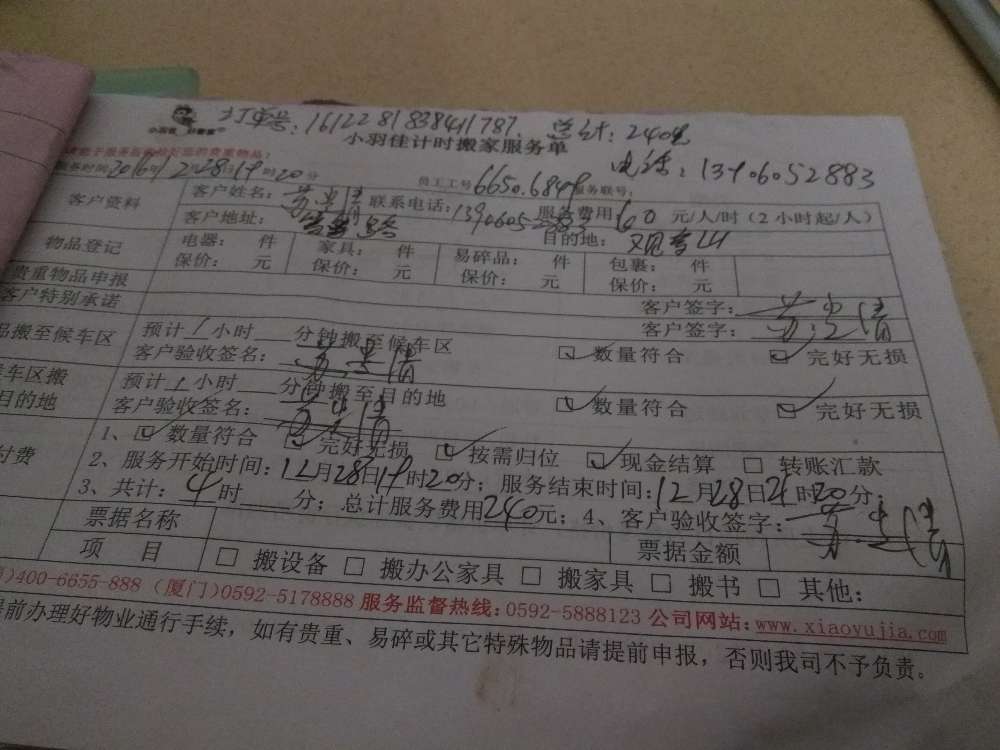 订单号:161228183841787. 总计:240元
小羽佳计时搬家服务单
电话:13906052883
服务时间2016年12月28日19时20分 员工工号6650.6849 服务联号:
客户资料
客户姓名: 联系电话:13906052883 服务费用60元/人/时(2小时起/人)
客户地址: 目的地:观音山
物品登记
电器: 件 家具: 件 易碎品: 件 包裹: 件
保价: 元 保价: 元 保价: 元 保价: 元
贵重物品申报 客户签字:
客户特别承诺 客户签字:
品搬至候车区
预计1小时 分钟搬至候车区
客户验收签名: ☑数量符合 ☑完好无损
车区搬
目的地
预计1小时 分钟搬至目的地
客户验收签名: ☑数量符合 ☑完好无损
付费
1、☑数量符合 ☑完好无损 ☑按需归位 ☑现金结算 □转账汇款
2、服务开始时间:12月28日19时20分;服务结束时间:12月28日21时20分;
3、共计:4时 分;总计服务费用240元;4、客户验收签字:
票据名称 票据金额
项 目 □搬设备 □搬办公家具 □搬家具 □搬书 □其他:
)400-6655-888 (厦门)0592-5178888 服务监督热线:0592-5888123 公司网站:www.xiaoyujia.com
提前办理好物业通行手续,如有贵重、易碎或其它特殊物品请提前申报,否则我司不予负责。